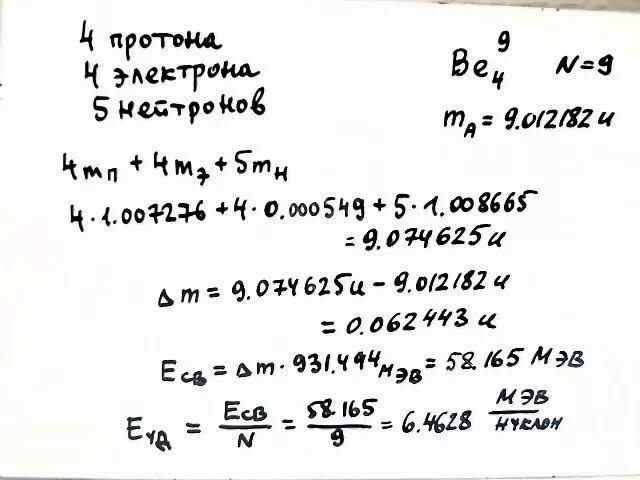 4 протона
4 электрона
5 нейтронов
Be₄⁹ N=9
m_A = 9.012182 u
4m_п + 4m_э + 5m_н
4·1.007276 + 4·0.000549 + 5·1.008665
= 9.074625 u
Δm = 9.074625 u − 9.012182 u
= 0.062443 u
E_св = Δm·931.494 МэВ = 58.165 МЭВ
E_уд = E_св/N = 58.165/9 = 6.4628 МЭВ/нуклон